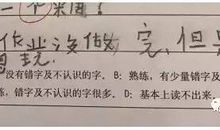 一个来回？
作业没做，完，但
没有错字及不认识的字. B: 熟练, 有少量错字及
练, 错字及不认识的字很多. D: 基本上读不出来.